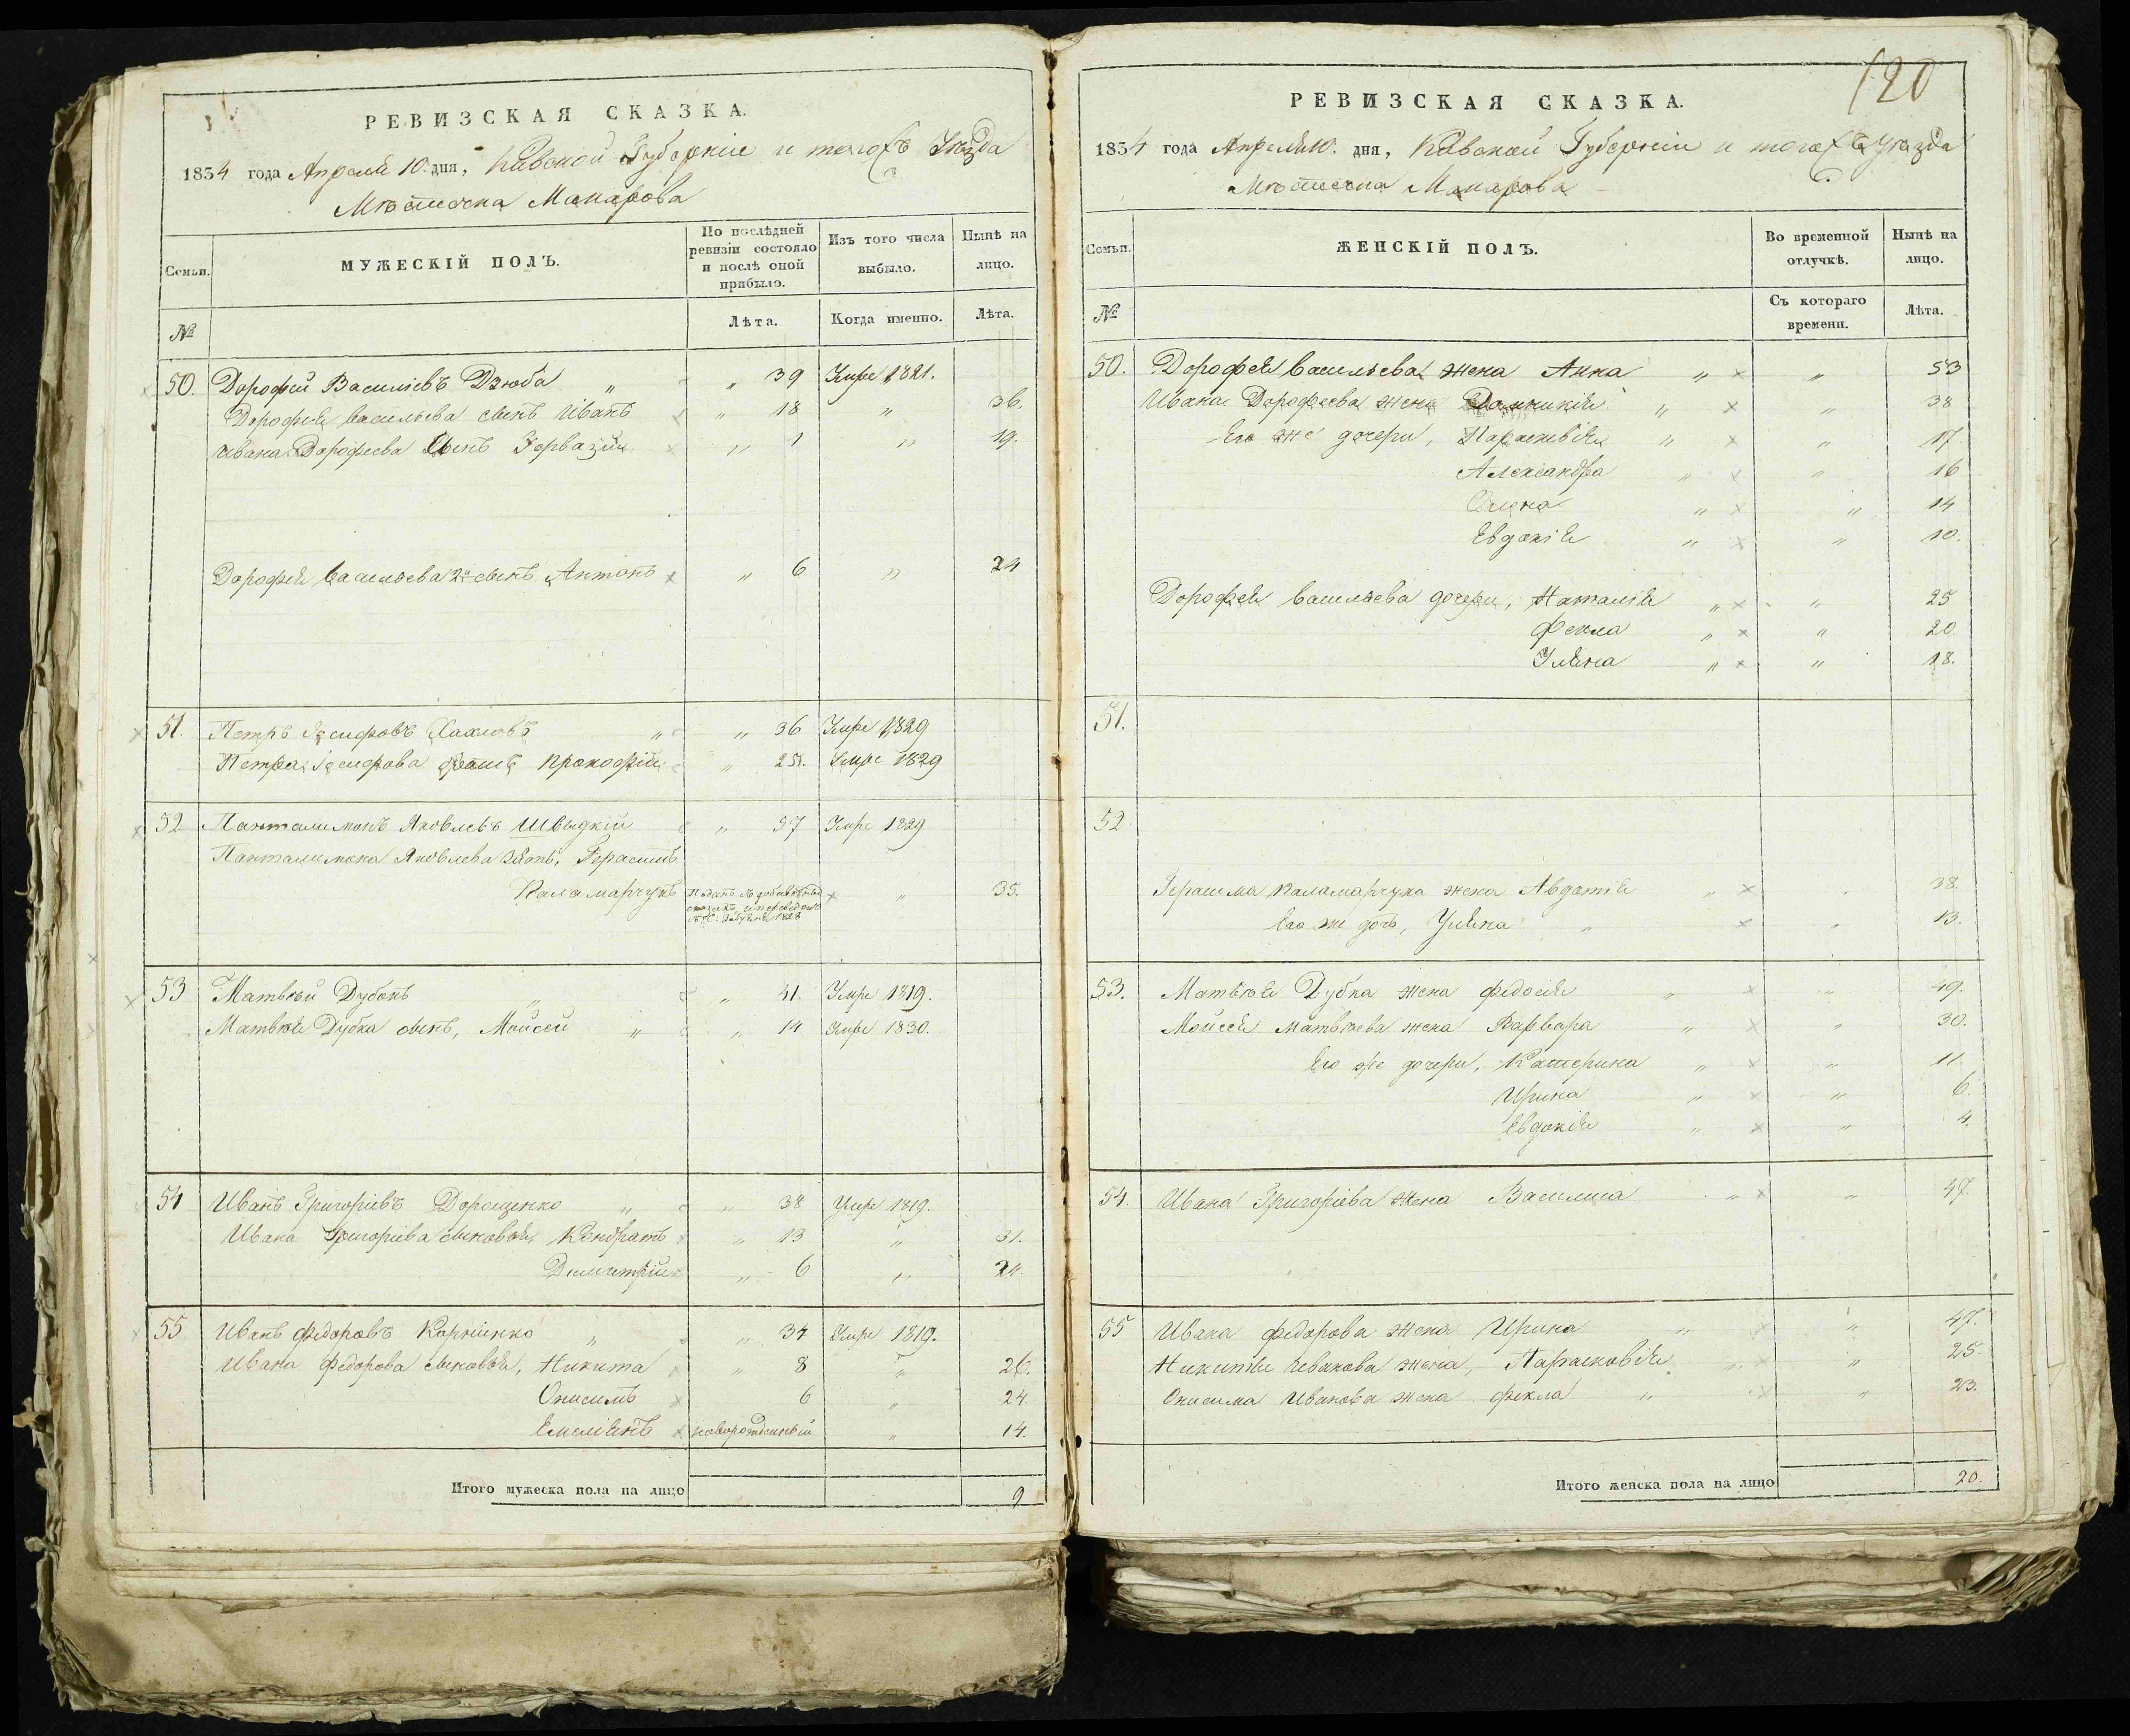 РЕВИЗСКАЯ СКАЗКА.
1834 года Апреля 10. дня, Киевской Губернии и тогожъ Уѣзда
Мѣстечка Макарова
Семьи.
МУЖЕСКІЙ ПОЛЪ.
По послѣдней ревизіи состояло и послѣ оной прибыло.
Изъ того числа выбыло.
Нынѣ на лицо.
№
Лѣта.
Когда именно.
Лѣта.
50. Дорофей Василіевъ Дзюба „ „ 39 Умре 1821.
Дорофея Васильева сынъ Иванъ „ 18 „ 36.
Ивана Дорофеева сынъ Гервазій „ 1 „ 19.
Дорофея Васильева 2й сынъ Антонъ „ 6 „ 24
51. Петръ Іосифовъ „ „ 36 Умре 1829
Петра Іосифова Прокофій „ 25. Умре 1829
52 Панталимонъ Яковлевъ Швыдкій „ 57 Умре 1829
Панталимона Яковлева зять, Герасимъ
Паламарчукъ „ 35.
53 Матвѣй Дубокъ „ „ 41. Умре 1819.
Матвѣя Дубка сынъ, Мойсей „ „ 14 Умре 1830.
54 Иванъ Григоріевъ Дорошенко „ „ 38 Умре 1819.
Ивана Григоріева сыновья, Кондратъ „ 13 „ 31.
Димитрій „ 6 „ 24.
55 Иванъ Федоровъ Корніенко „ „ 34 Умре 1819.
Ивана Федорова сыновья, Никита „ 8 „ 26.
Онисимъ 6 „ 24
Емеліянъ новорожденный „ 14.
Итого мужеска пола на лицо 9
120
РЕВИЗСКАЯ СКАЗКА.
1834 года Апреля 10. дня, Киевской Губерніи и тогожъ Уѣзда
Мѣстечка Макарова
Семьи.
ЖЕНСКІЙ ПОЛЪ.
Во временной отлучкѣ.
Нынѣ на лицо.
№
Съ котораго времени.
Лѣта.
50. Дорофея Васильева жена Анна „ „ 53
Ивана Дорофеева жена „ „ 38
Его же дочери, Параскевія „ „ 17
Александра „ „ 16
Елена „ „ 14
Евдокія „ „ 10.
Дорофея Васильева дочери, Наталія „ „ 25
Фекла „ „ 20
Уляна „ „ 18.
51.
52
Герасима Паламарчука жена Авдотія „ 38.
Его же дочь, Уляна „ „ 13.
53. Матвѣя Дубка жена Федосія „ „ 49.
Мойсея Матвѣева жена Варвара „ „ 30.
Его же дочери, Катерина „ „ 11.
Ирина „ „ 6.
Евдокія „ „ 4.
54. Ивана Григоріева жена Василиса „ „ 47
55 Ивана Федорова жена Ирина „ „ 47.
Никиты Иванова жена, Парасковія „ „ 25.
Онисима Иванова жена Фекла „ „ 23.
Итого женска пола на лицо 20.